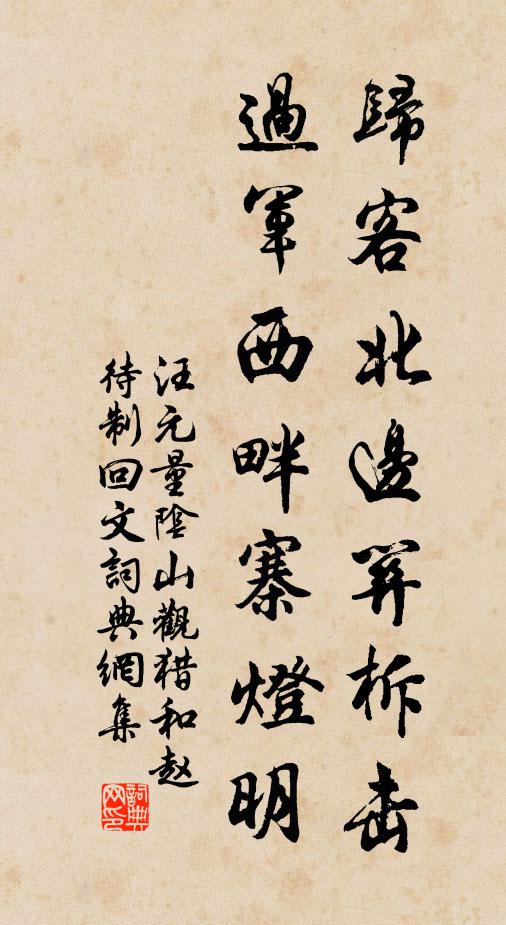 歸客北邊關柝击
過軍西畔寨燈明
汪元量陰山觀猎和赵
待制回文詞典網集
詞典
网印